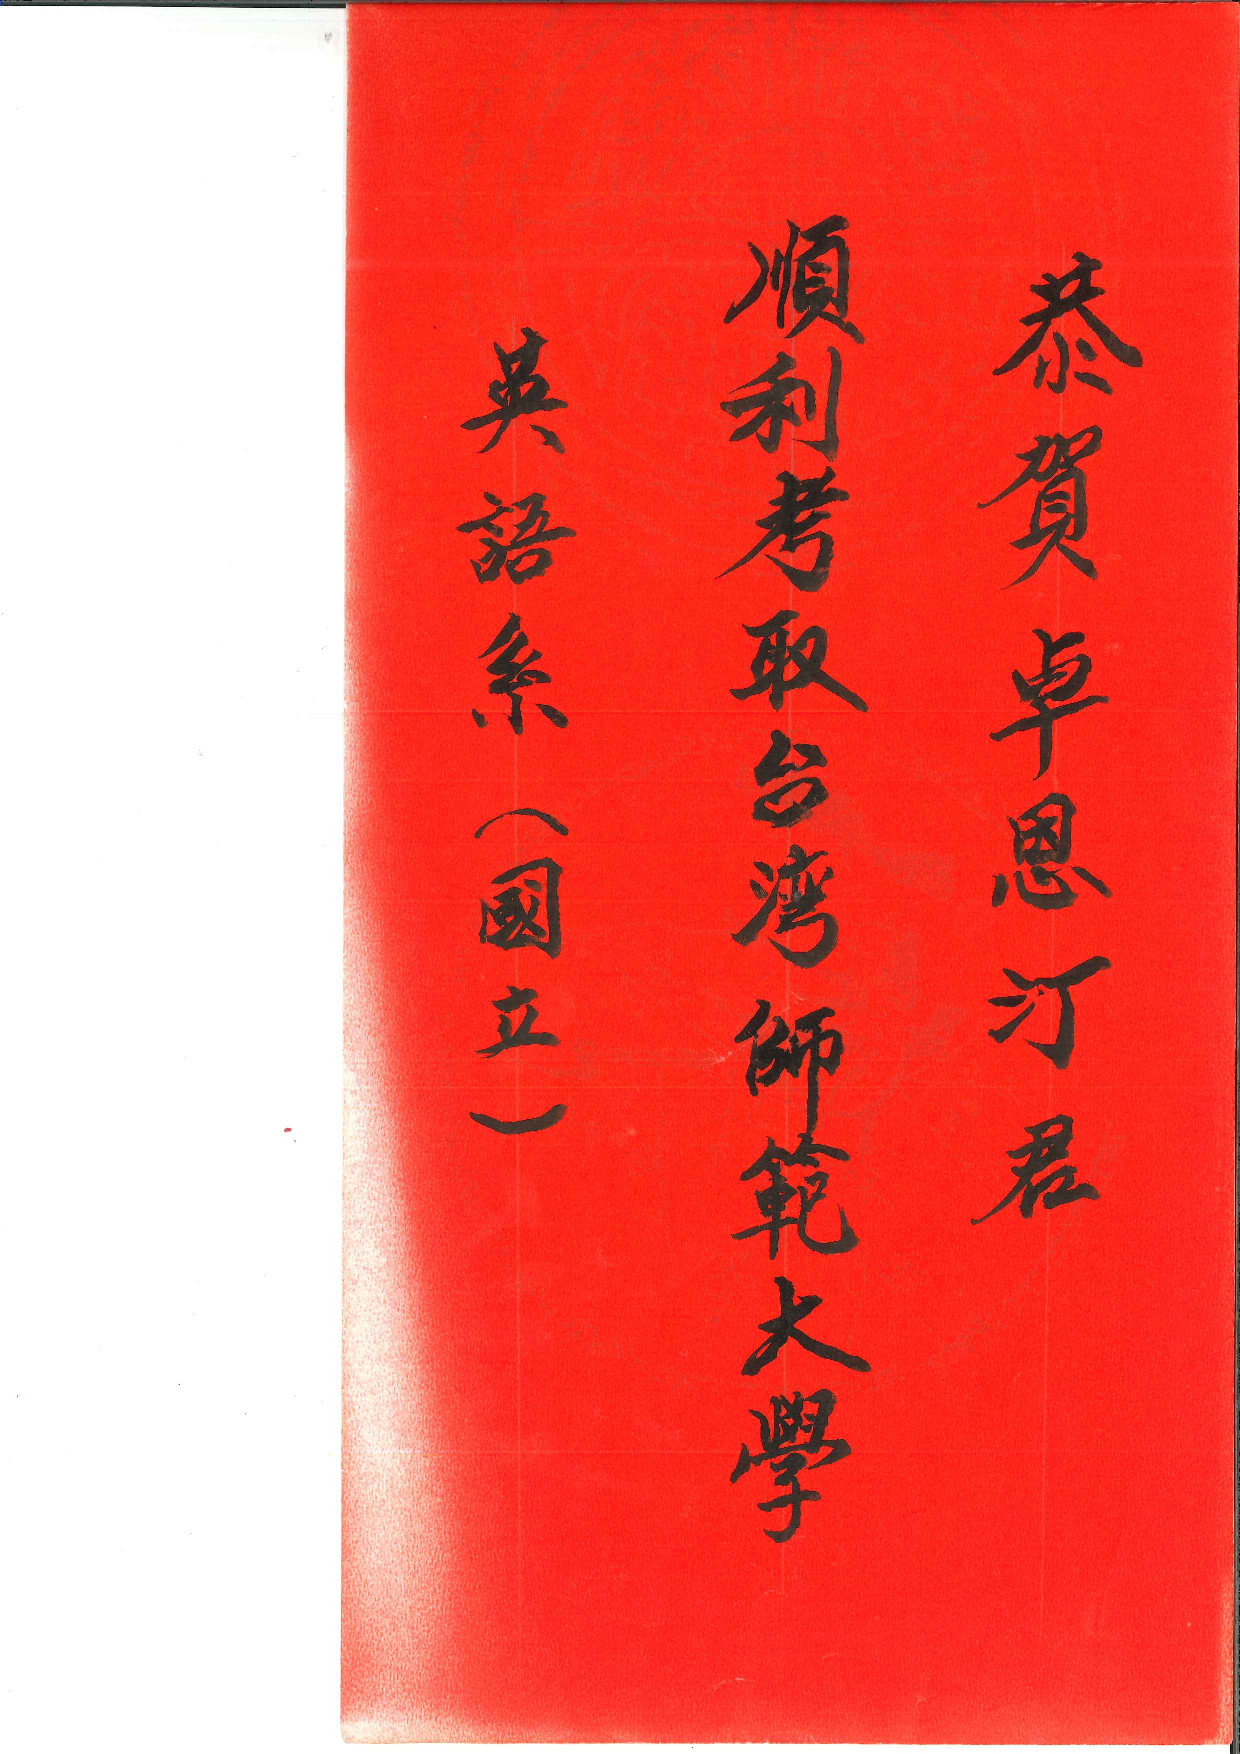 恭賀卓恩汀君
順利考取台灣師範大學
英語系（國立）